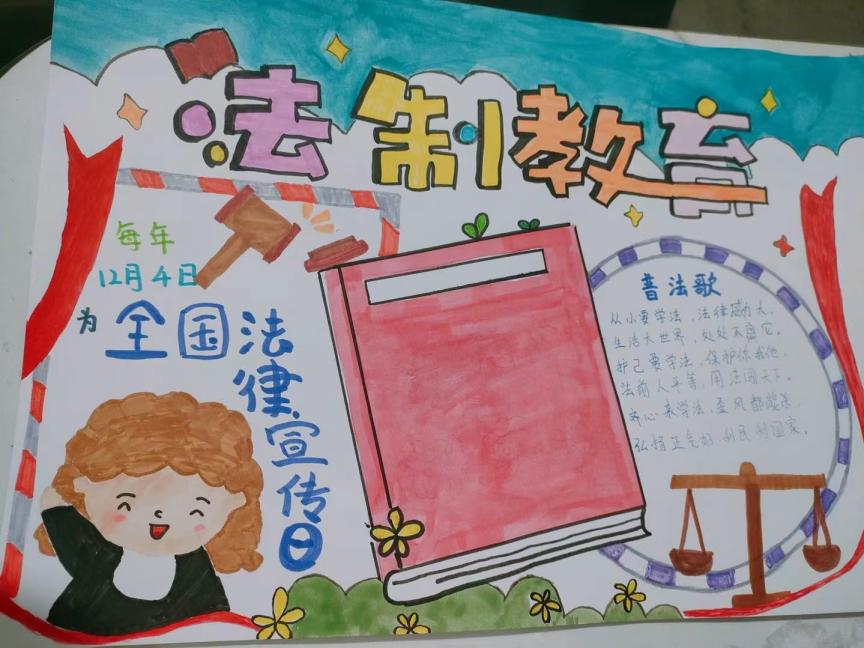 法制教育
每年
12月4日
为
全国
法律宣传日
普法歌
从小要学法，法律威力大，
生活大世界，处处不离它。
护己要学法，保护你我他，
法前人平等，用法闯天下。
齐心来学法，歪风都
弘扬正气 利民利国家。